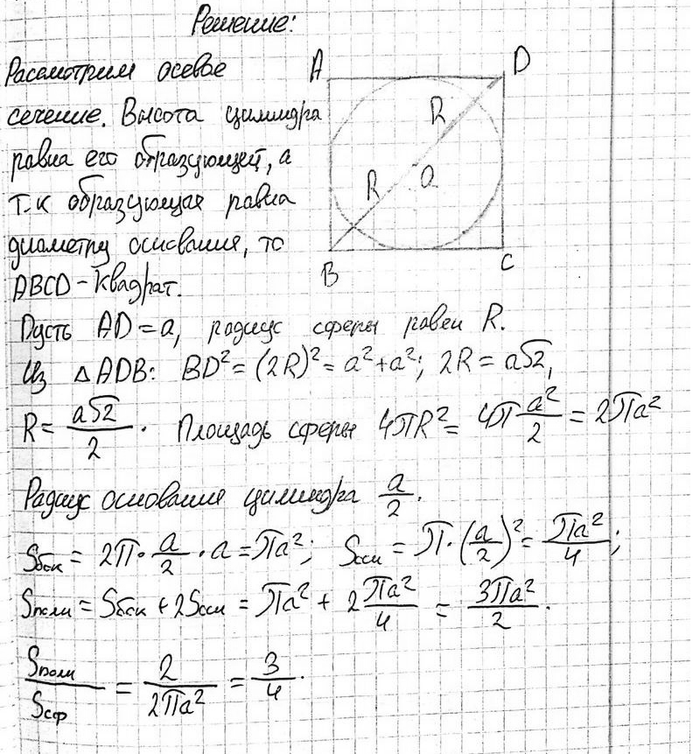 Решение:
Рассмотрим осевое
сечение. Высота цилиндра
равна его образующей, а
т.к образующая равна
диаметру основания, то
ABCD - квадрат.
A
D
R
R
O
B
C
Пусть AD = a, радиус сферы равен R.
Из △ADB: BD² = (2R)² = a² + a²; 2R = a√2,
R = a√2/2. Площадь сферы 4πR² = 4π a²/2 = 2πa²
Радиус основания цилиндра a/2.
Sбок = 2π · a/2 · a = πa²; Sосн = π · (a/2)² = πa²/4;
Sполн = Sбок + 2Sосн = πa² + 2 πa²/4 = 3πa²/2.
Sполн/Sсф = 2/2πa² = 3/4.